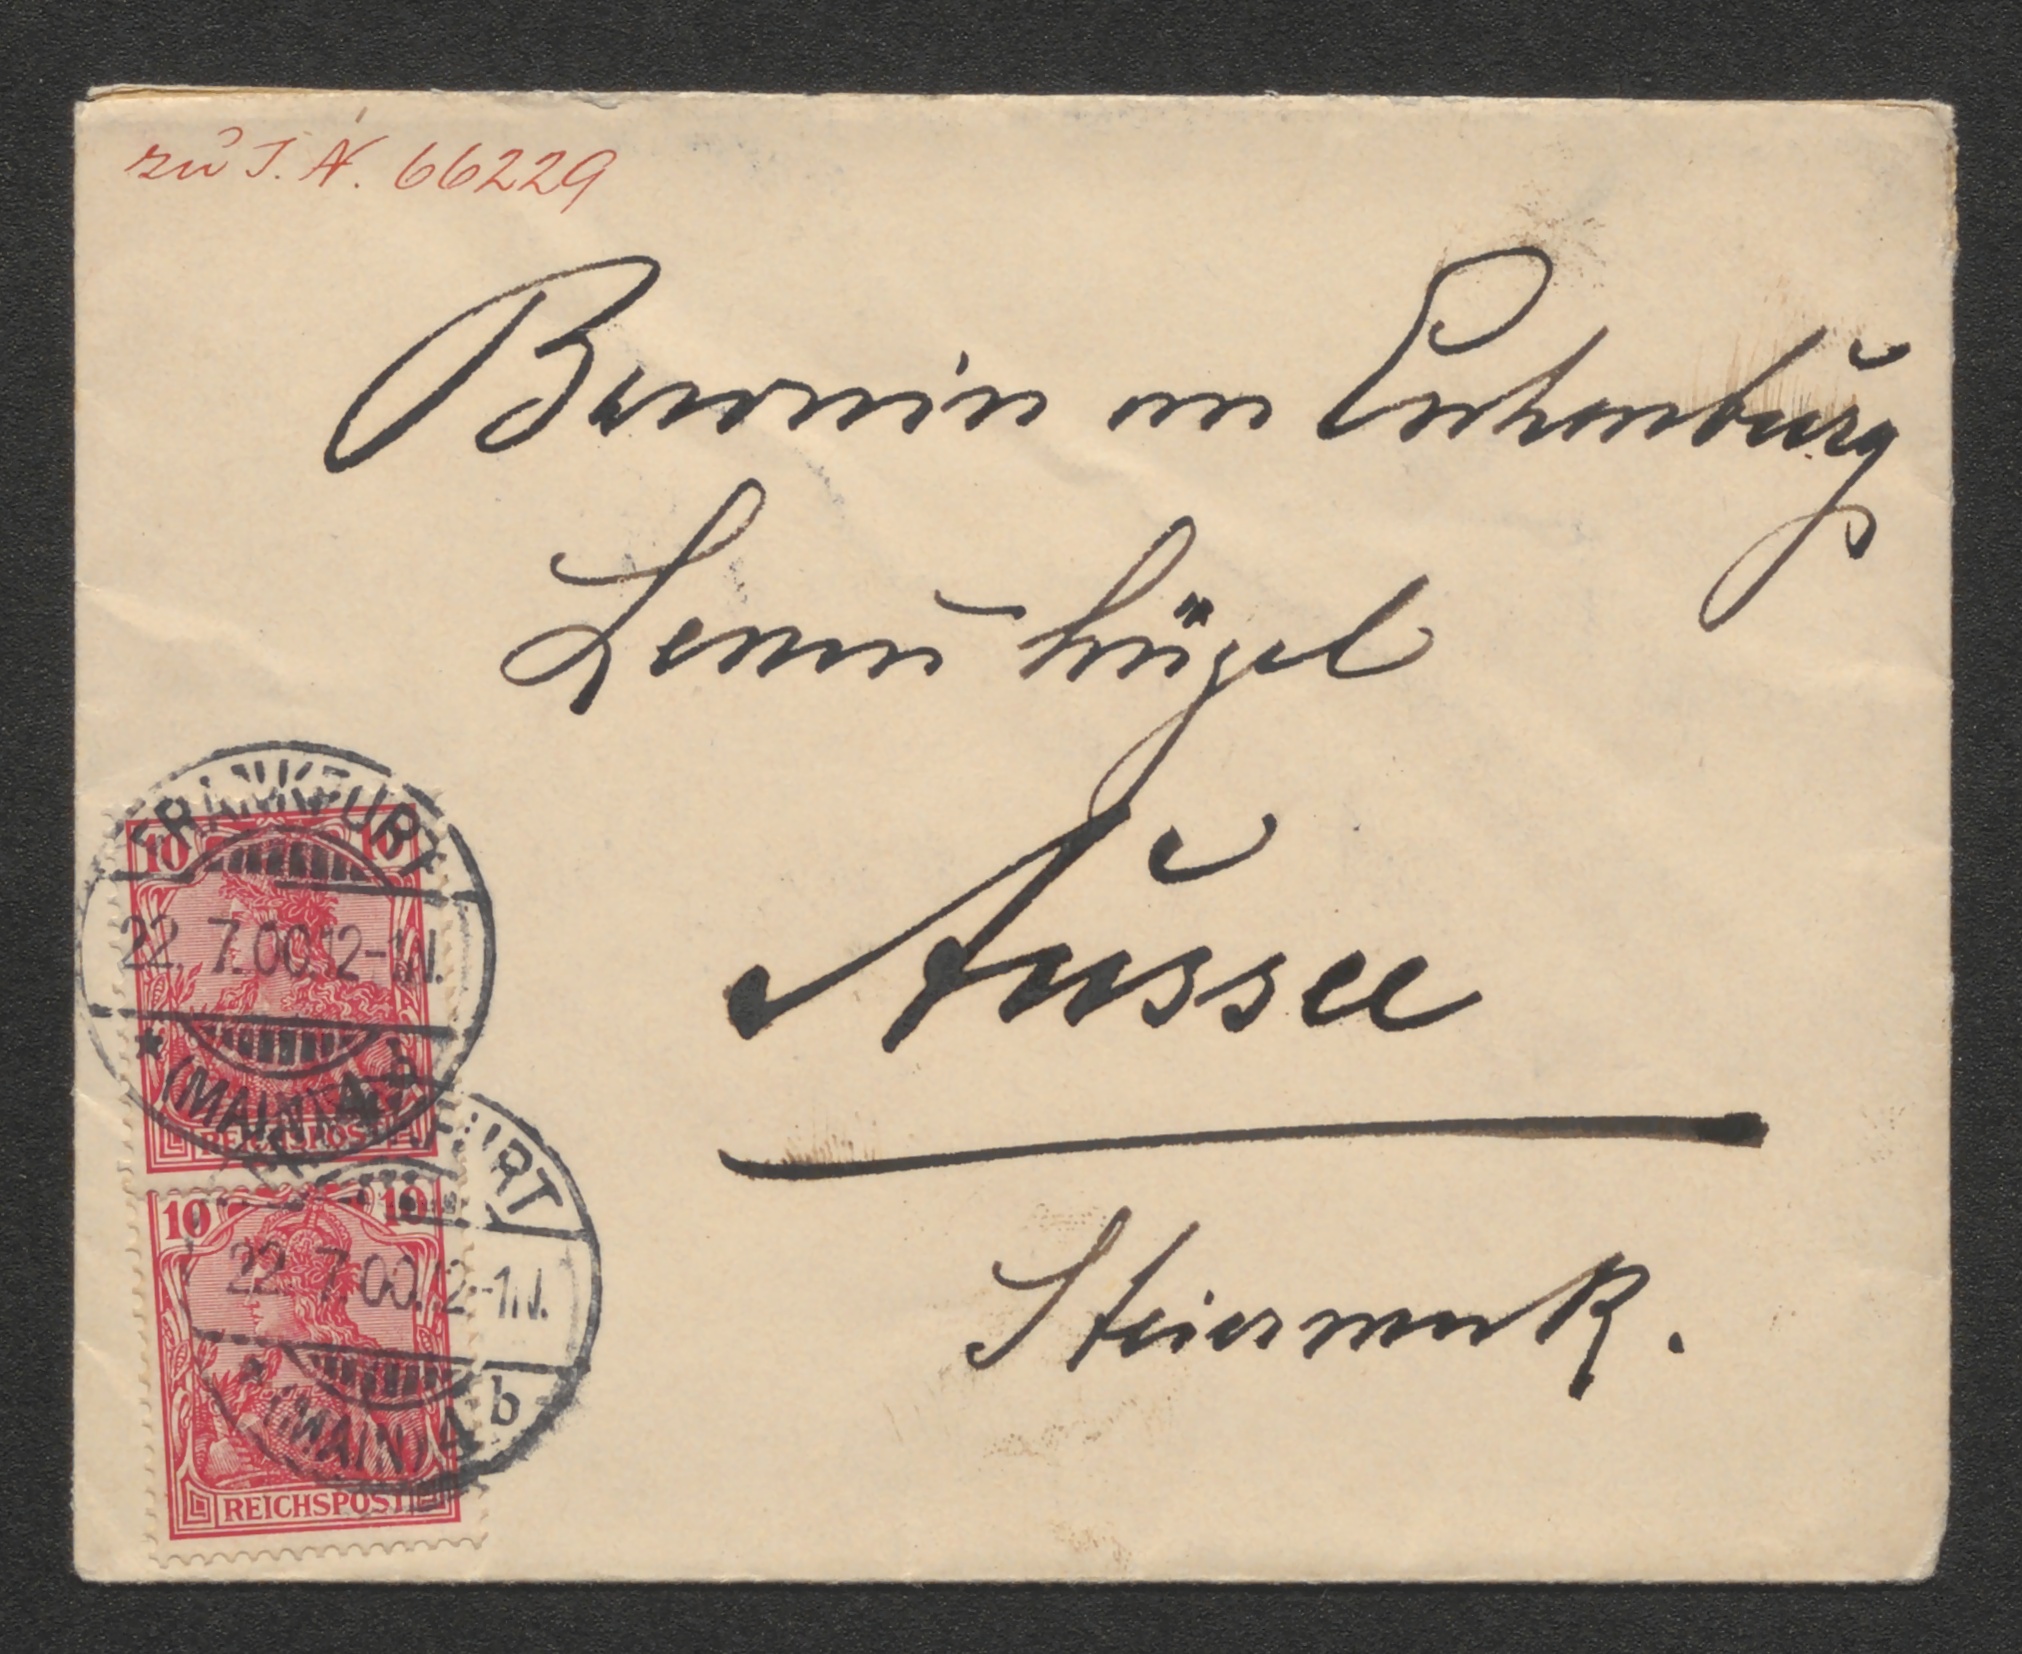 zu I. N. 66229
Baronin von Eichenburg
Lenauhügel
Aussee
Steiermark.
FRANKFURT
10 10
22. 7. 00. 12-1 N.
* (MAIN) 4 b
REICHSPOST
FRANKFURT
10 10
22. 7. 00. 12-1 N.
* (MAIN) 4 b
REICHSPOST